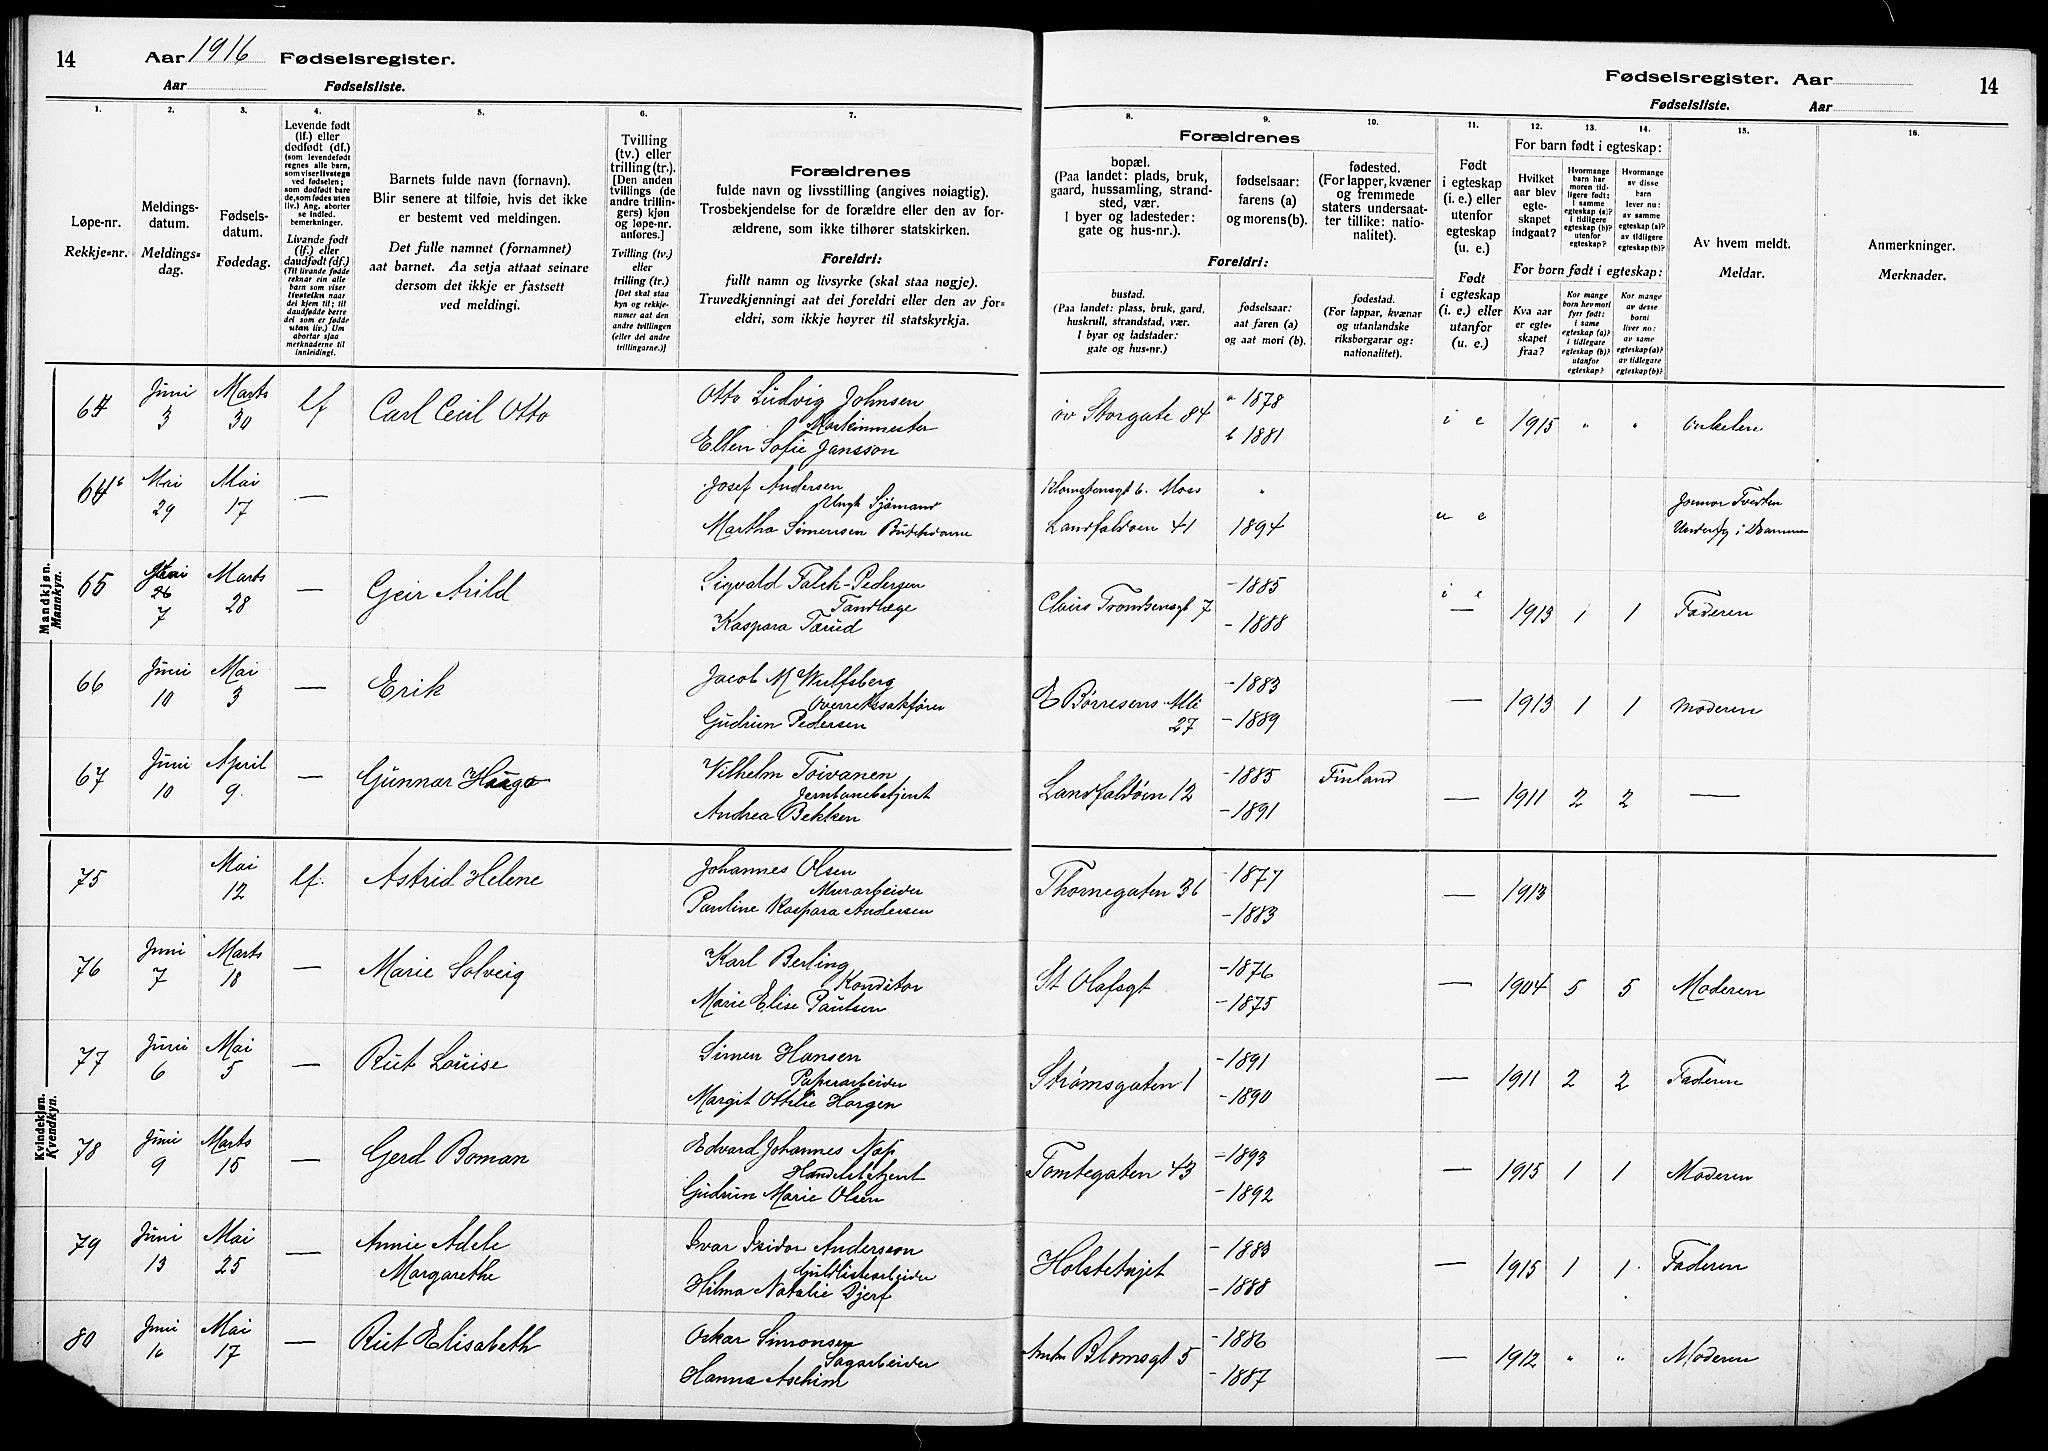 14
Aar 1916 Fødselsregister.
Aar Fødselsliste.
1.
2.
3.
4.
5.
6.
7.
Løpe-nr.
Rekkje-nr.
Meldings-
datum.
Meldings-
dag.
Fødsels-
datum.
Fødedag.
Levende født
(lf.) eller
dødfødt (df.)
(som levendefødt
regnes alle barn,
som viser livstegn
ved fødselen;
som dødfødt bare
de, som fødes uten
liv.) Ang. aborter
se indled.
bemerkninger.
Livande født
(lf.) eller
daudfødt (df.)
(Til livande fødde
reknar ein alle
born som viser
livsteikn naar
dei kjem til; til
daudfødde berre
dei som er fødde
utan liv.) Um
abortar sjaa
merknaderne til
innleidingi.
Barnets fulde navn (fornavn).
Blir senere at tilføie, hvis det ikke
er bestemt ved meldingen.
Det fulle namnet (fornamnet)
aat barnet. Aa setja attaat seinare
dersom det ikkje er fastsett
ved meldingi.
Tvilling
(tv.) eller
trilling (tr.).
[Den anden
tvillings (de
andre trillin-
gers) kjøn
og løpe-nr.
anføres.]
Tvilling (tv.)
eller
trilling (tr.)
[Det skal staa
kyn og rekkje-
numer aat den
andre tvillingen
(eller dei andre
trillingarne.)]
Forældrenes
fulde navn og livsstilling (angives nøiagtig).
Trosbekjendelse for de forældre eller den av for-
ældrene, som ikke tilhører statskirken.
Foreldri:
fullt namn og livsyrke (skal staa nøgje).
Truvedkjenningi aat dei foreldri eller den av for-
eldri, som ikkje høyrer til statskyrkja.
Fødselsregister. Aar
14
Fødselsliste. Aar
8.
9.
10.
11.
12.
13.
14.
15.
16.
Forældrenes
bopæl.
(Paa landet: plads, bruk,
gaard, hussamling, strand-
sted, vær.
I byer og ladesteder:
gate og hus-nr.).
Foreldri:
bustad.
(Paa landet: plass, bruk, gard,
huskrull, strandstad, vær.
I byar og ladstader:
gate og hus-nr.)
fødselsaar:
farens (a)
og morens (b).
fødselsaar:
aat faren (a)
og aat mori (b).
fødested.
(For lapper, kvæner
og fremmede
staters undersaat-
ter tillike: natio-
nalitet).
fødestad.
(For lappar, kvænar
og utanlandske
riksborgarar og:
nationalitet).
Født
i egteskap
(i. e.) eller
utenfor
egteskap
(u. e.)
Født
i egteskap
(i. e.) eller
utanfor
(u. e.)
For barn født i egteskap:
Hvilket
aar blev
egte-
skapet
indgaat?
Hvormange
barn har
moren tid-
ligere født:
i samme
egteskap (a)?
i tidligere
egteskap (b)?
utenfor
egteskap?
Hvormange
av disse
barn
lever nu:
av samme
egteskap (a)?
av tidligere
egteskap (b)?
For born født i egteskap:
Kva aar
er egte-
skapet
fraa?
Kor mange
born hev mori
fyrr født:
i same
egteskap (a)?
i tidlegare
egteskap (b)?
utanfor
egteskap?
Kor mange
av desse
borni
liver no:
av same
egteskap (a)?
av tidlegare
egteskap (b)?
Av hvem meldt.
Meldar.
Anmerkninger.
Merknader.
Mandkjøn.
Mannkyn.
64 Juni 3 Marts 30 lf Carl Cecil Otto Otto Ludvig Johnsen
Maskinmester
Ellen Sofie Jansson
øv Storgate 84 a 1878 b 1881 i e 1915 " " Onkelen
64 b Mai 29 Mai 17 — Josef Andersen
Ungk Sjømand
Martha Simensen
Blomstensgt 6. Moss "
Landfaldøen 41 1894 u e
Jonnor Tvedten
65 26 7 Marts 28 — Geir Arild Sigvald Falck-Pedersen
Tandlæge
Kaspara Tarud
Claus Trondsensgt 7 -1885 -1888 i e — 1913 1 1 Faderen
66 Juni 10 Mai 3 — Erik Jacob M Wulfsberg
Overretssakfører
Gudrun Pedersen
E Børresens Alle 27 -1883 -1889 — 1913 1 1 Moderen
67 Juni 10 April 9. — Gunnar Hugo Vilhelm Toivanen
Jernbanebetjent
Andrea Bekken
Landfaldøen 12 -1885 -1891 Finland — 1911 2 2 —
Kvindekjøn.
Kvendkyn.
75 Mai 12 lf. Astrid Helene Johannes Olsen
Murarbeider
Pauline Kaspara Andersen
Thornegaten 36 -1877 -1883 — 1913
76 Juni 7 Marts 18 — Marie Solveig Karl Berling
Konditor
Marie Elise Paulsen
St Olafsgt -1876 -1875 — 1904 5 5 Moderen
77 Juni 6 Mai 5 — Rut Louise Simen Hansen
Papirarbeider
Margit Ottilie Horgen
Strømsgaten 1 -1891 -1890 — 1911 2 2 Faderen
78 Juni 9 Marts 15 — Gerd Boman Edvard Johannes Næp
Handelsbetjent
Gudrun Marie Olsen
Tomtegaten 43 -1893 -1892 — 1915 1 1 Moderen
79 Juni 13 Mai 25 — Annie Adele
Margarethe
Ivar Isidor Andersson
Guldlistearbeider
Hilma Natalie Djerf
-1883 -1888 — 1915 1 1 Faderen
80 Juni 16 Mai 17 — Rut Elisabeth Oskar Simonsen
Sagarbeider
Hanna Aschim
Blomsgt 5 -1886 -1887 — 1912 " " Moderen